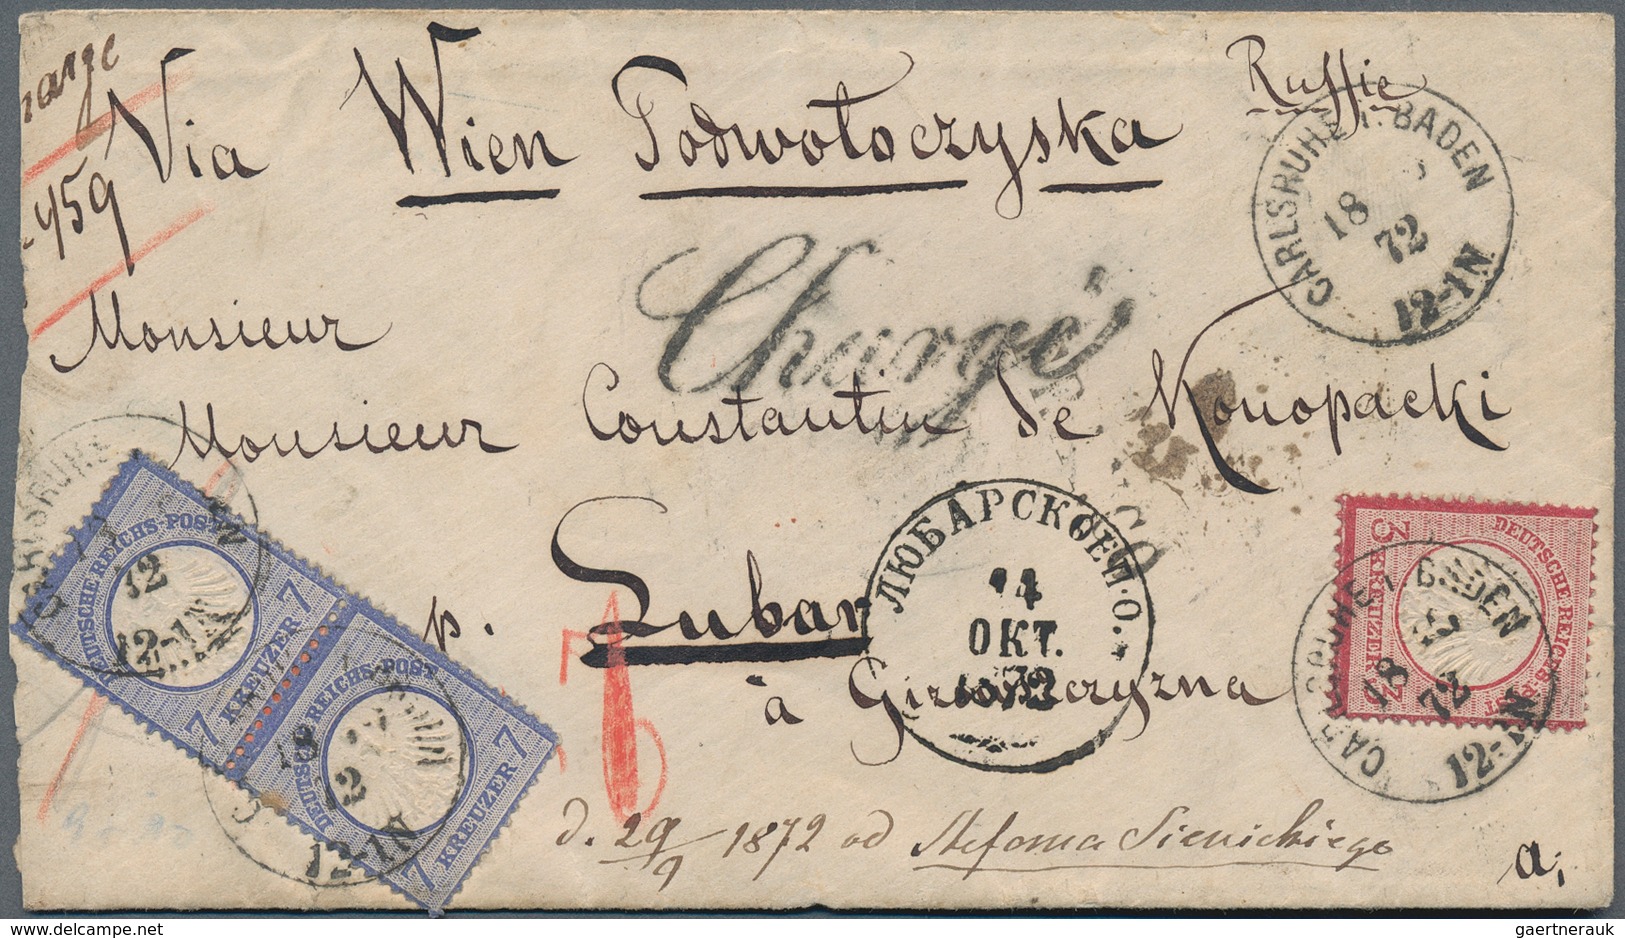 Ruſsie
Via Wien Podwołoczyska
459
CARLSRUHE I. BADEN
18
72
12-1N
Chargé
Monsieur
Monsieur Constantin de Konopacki
p. Lubar
à
ЛЮБАРСКОЕ П.О.
14
ОКТ.
1872
DEUTSCHE REICHS-POST
7 KREUZER 7
12
12-1N
DEUTSCHE REICHS-POST
7 KREUZER 7
18
12-1N
DEUTSCHE REICHS-POST
3 KREUZER 3
CARLSRUHE I. BADEN
18
72
12-1N
d. 29/9 1872 od Stefana Sienickiego
a,
gaertnerauk